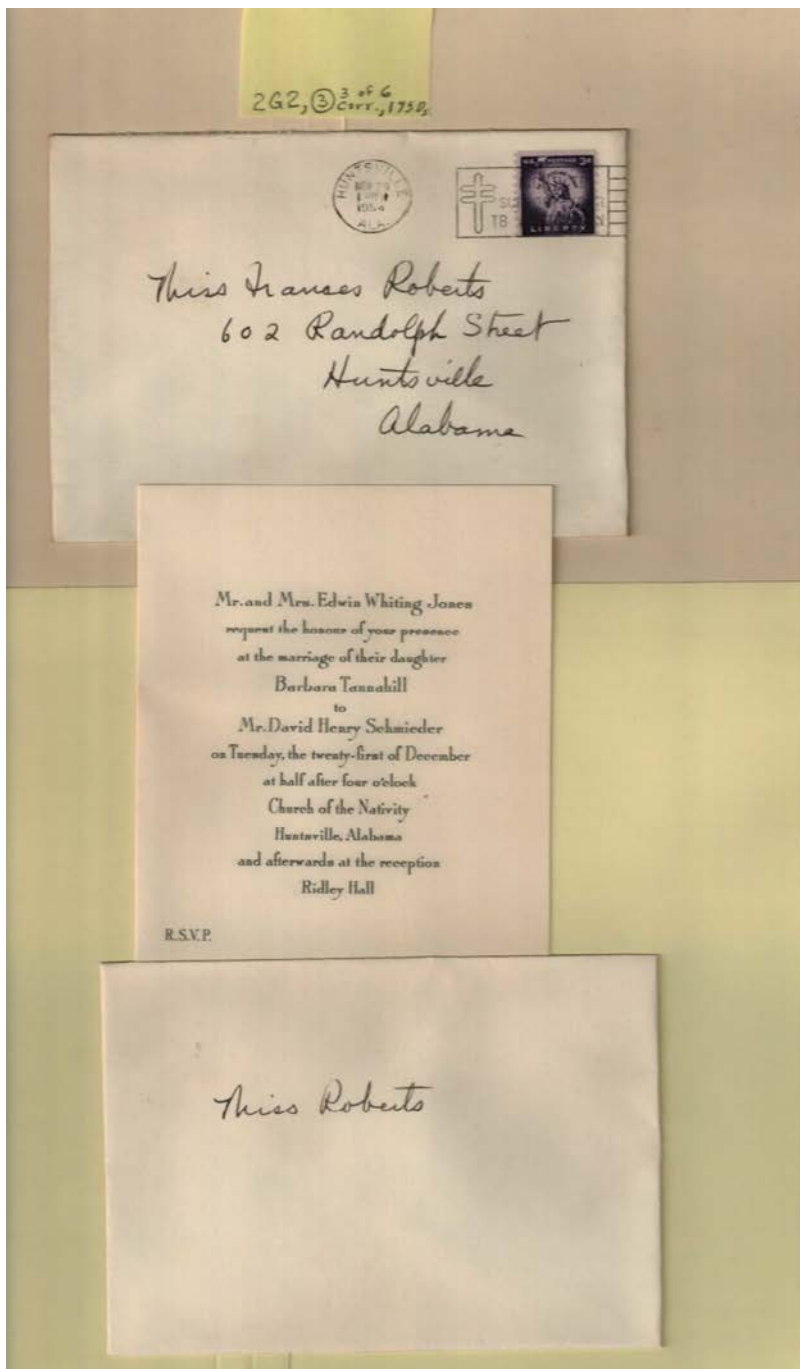 2G2, ③ 3 of 6
Corr., 1950s
HUNTSVILLE
1954
ALA.
TB
U.S. POSTAGE 3¢
LIBERTY
Miss Frances Roberts
602 Randolph Street
Huntsville
Alabama
Mr. and Mrs. Edwin Whiting Jones
request the honour of your presence
at the marriage of their daughter
Barbara Tannahill
to
Mr. David Henry Schmieder
on Tuesday, the twenty-first of December
at half after four o'clock
Church of the Nativity
Huntsville, Alabama
and afterwards at the reception
Ridley Hall
R.S.V.P.
Miss Roberts